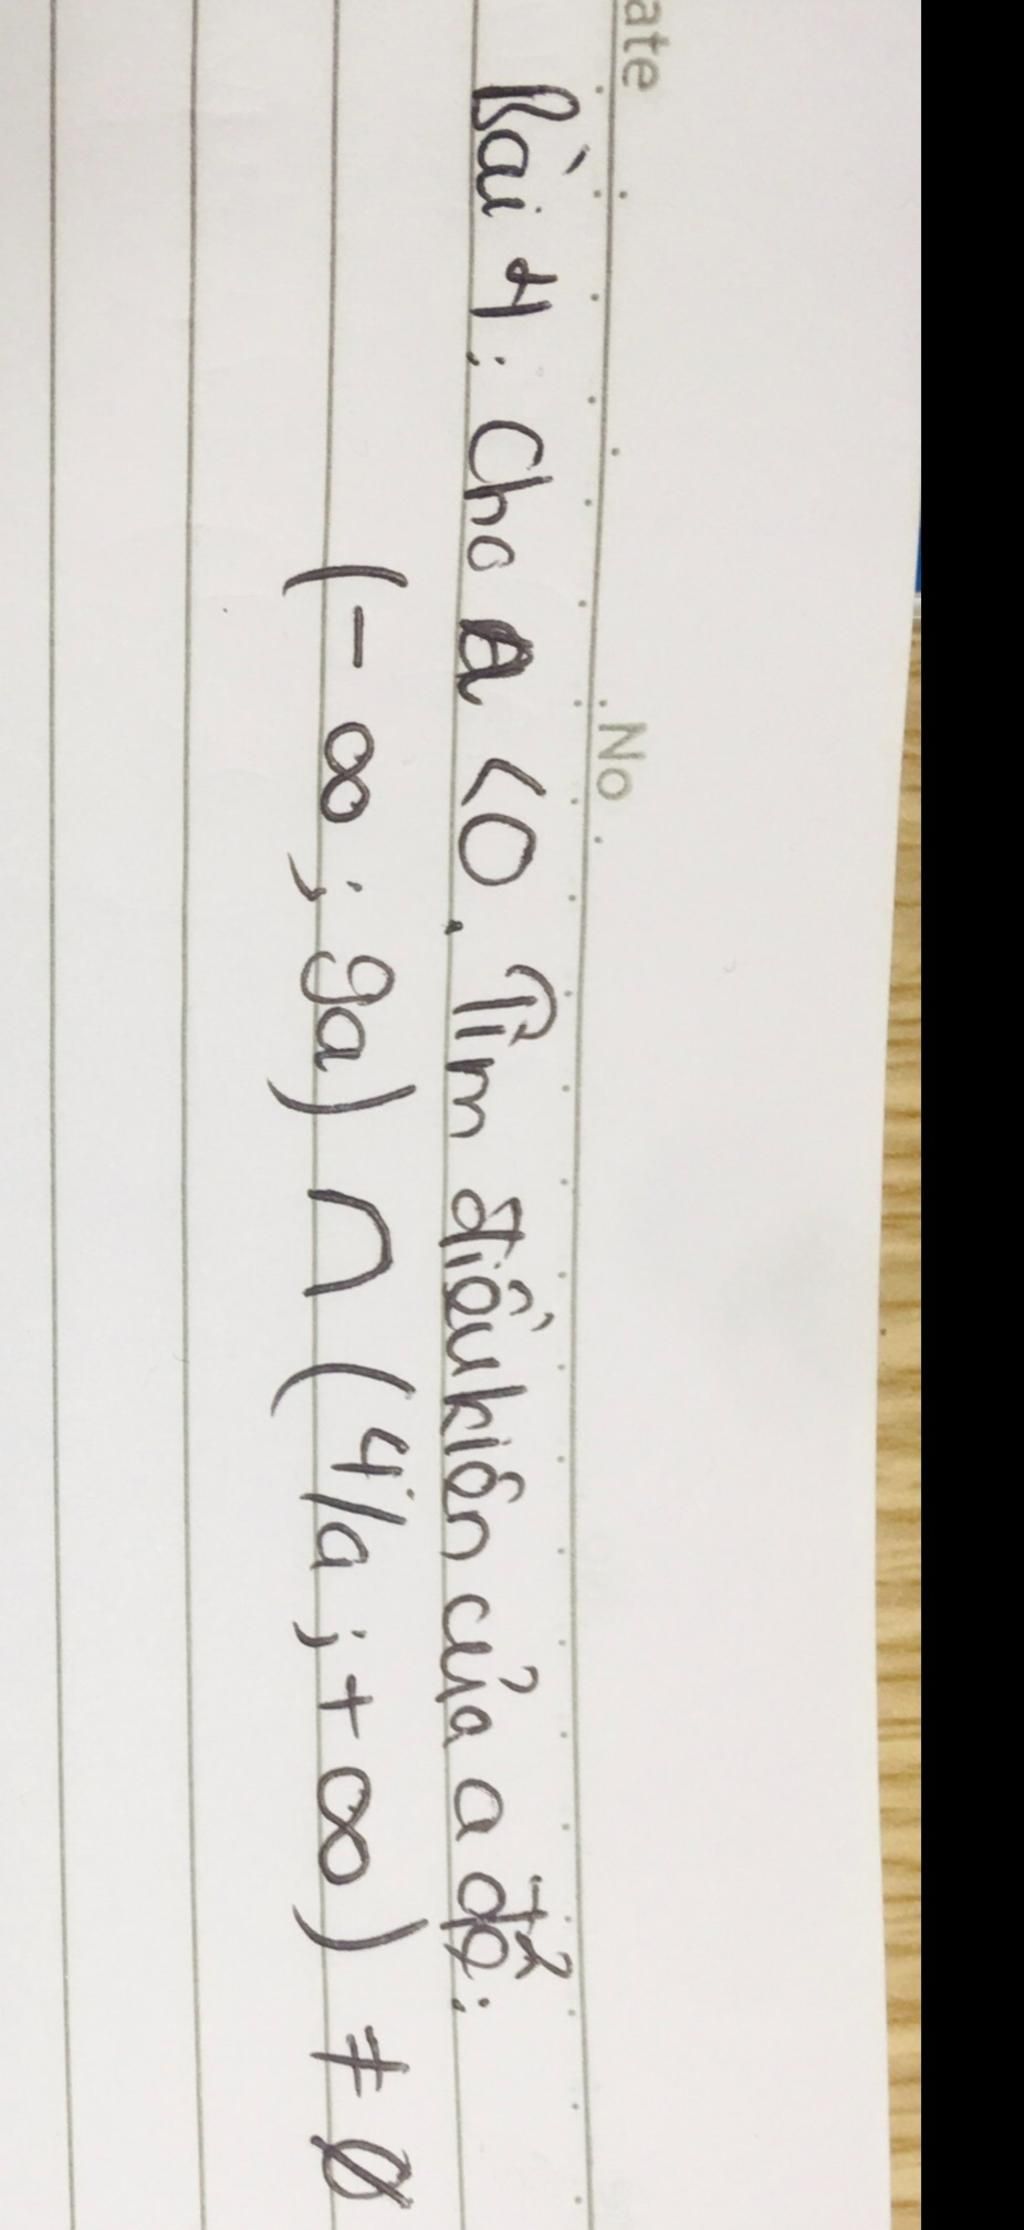 ate
No
Bài 4: Cho a <0. Tìm điều kiện của a để:
(-∞; 9a) ∩ (4/a; +∞) ≠ Ø